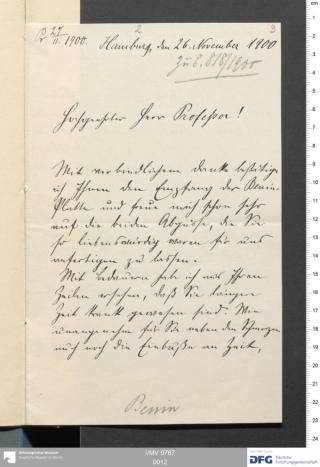 Pr 27/11. 1900.
2
3
Hamburg, den 26. November 1900
zu E. 818/1900
Hochgeehrter Herr Professor!
Mit verbindlichem Danke bestätige
ich Ihnen den Empfang der Benin-
Platte und freue mich schon sehr
auf die beiden Abgüsse, die Sie
so liebenswürdig waren für uns
anfertigen zu lassen.
Mit Bedauern habe ich aus Ihren
Zeilen ersehen, daß Sie längere
Zeit krank gewesen sind. Wie
unangenehm für Sie neben den Schmerzen
auch noch die Einbuße an Zeit,
Benin
Ethnologisches Museum
Staatliche Museen zu Berlin
I/MV 0767
0012
gefördert durch
DFG Deutsche
Forschungsgemeinschaft